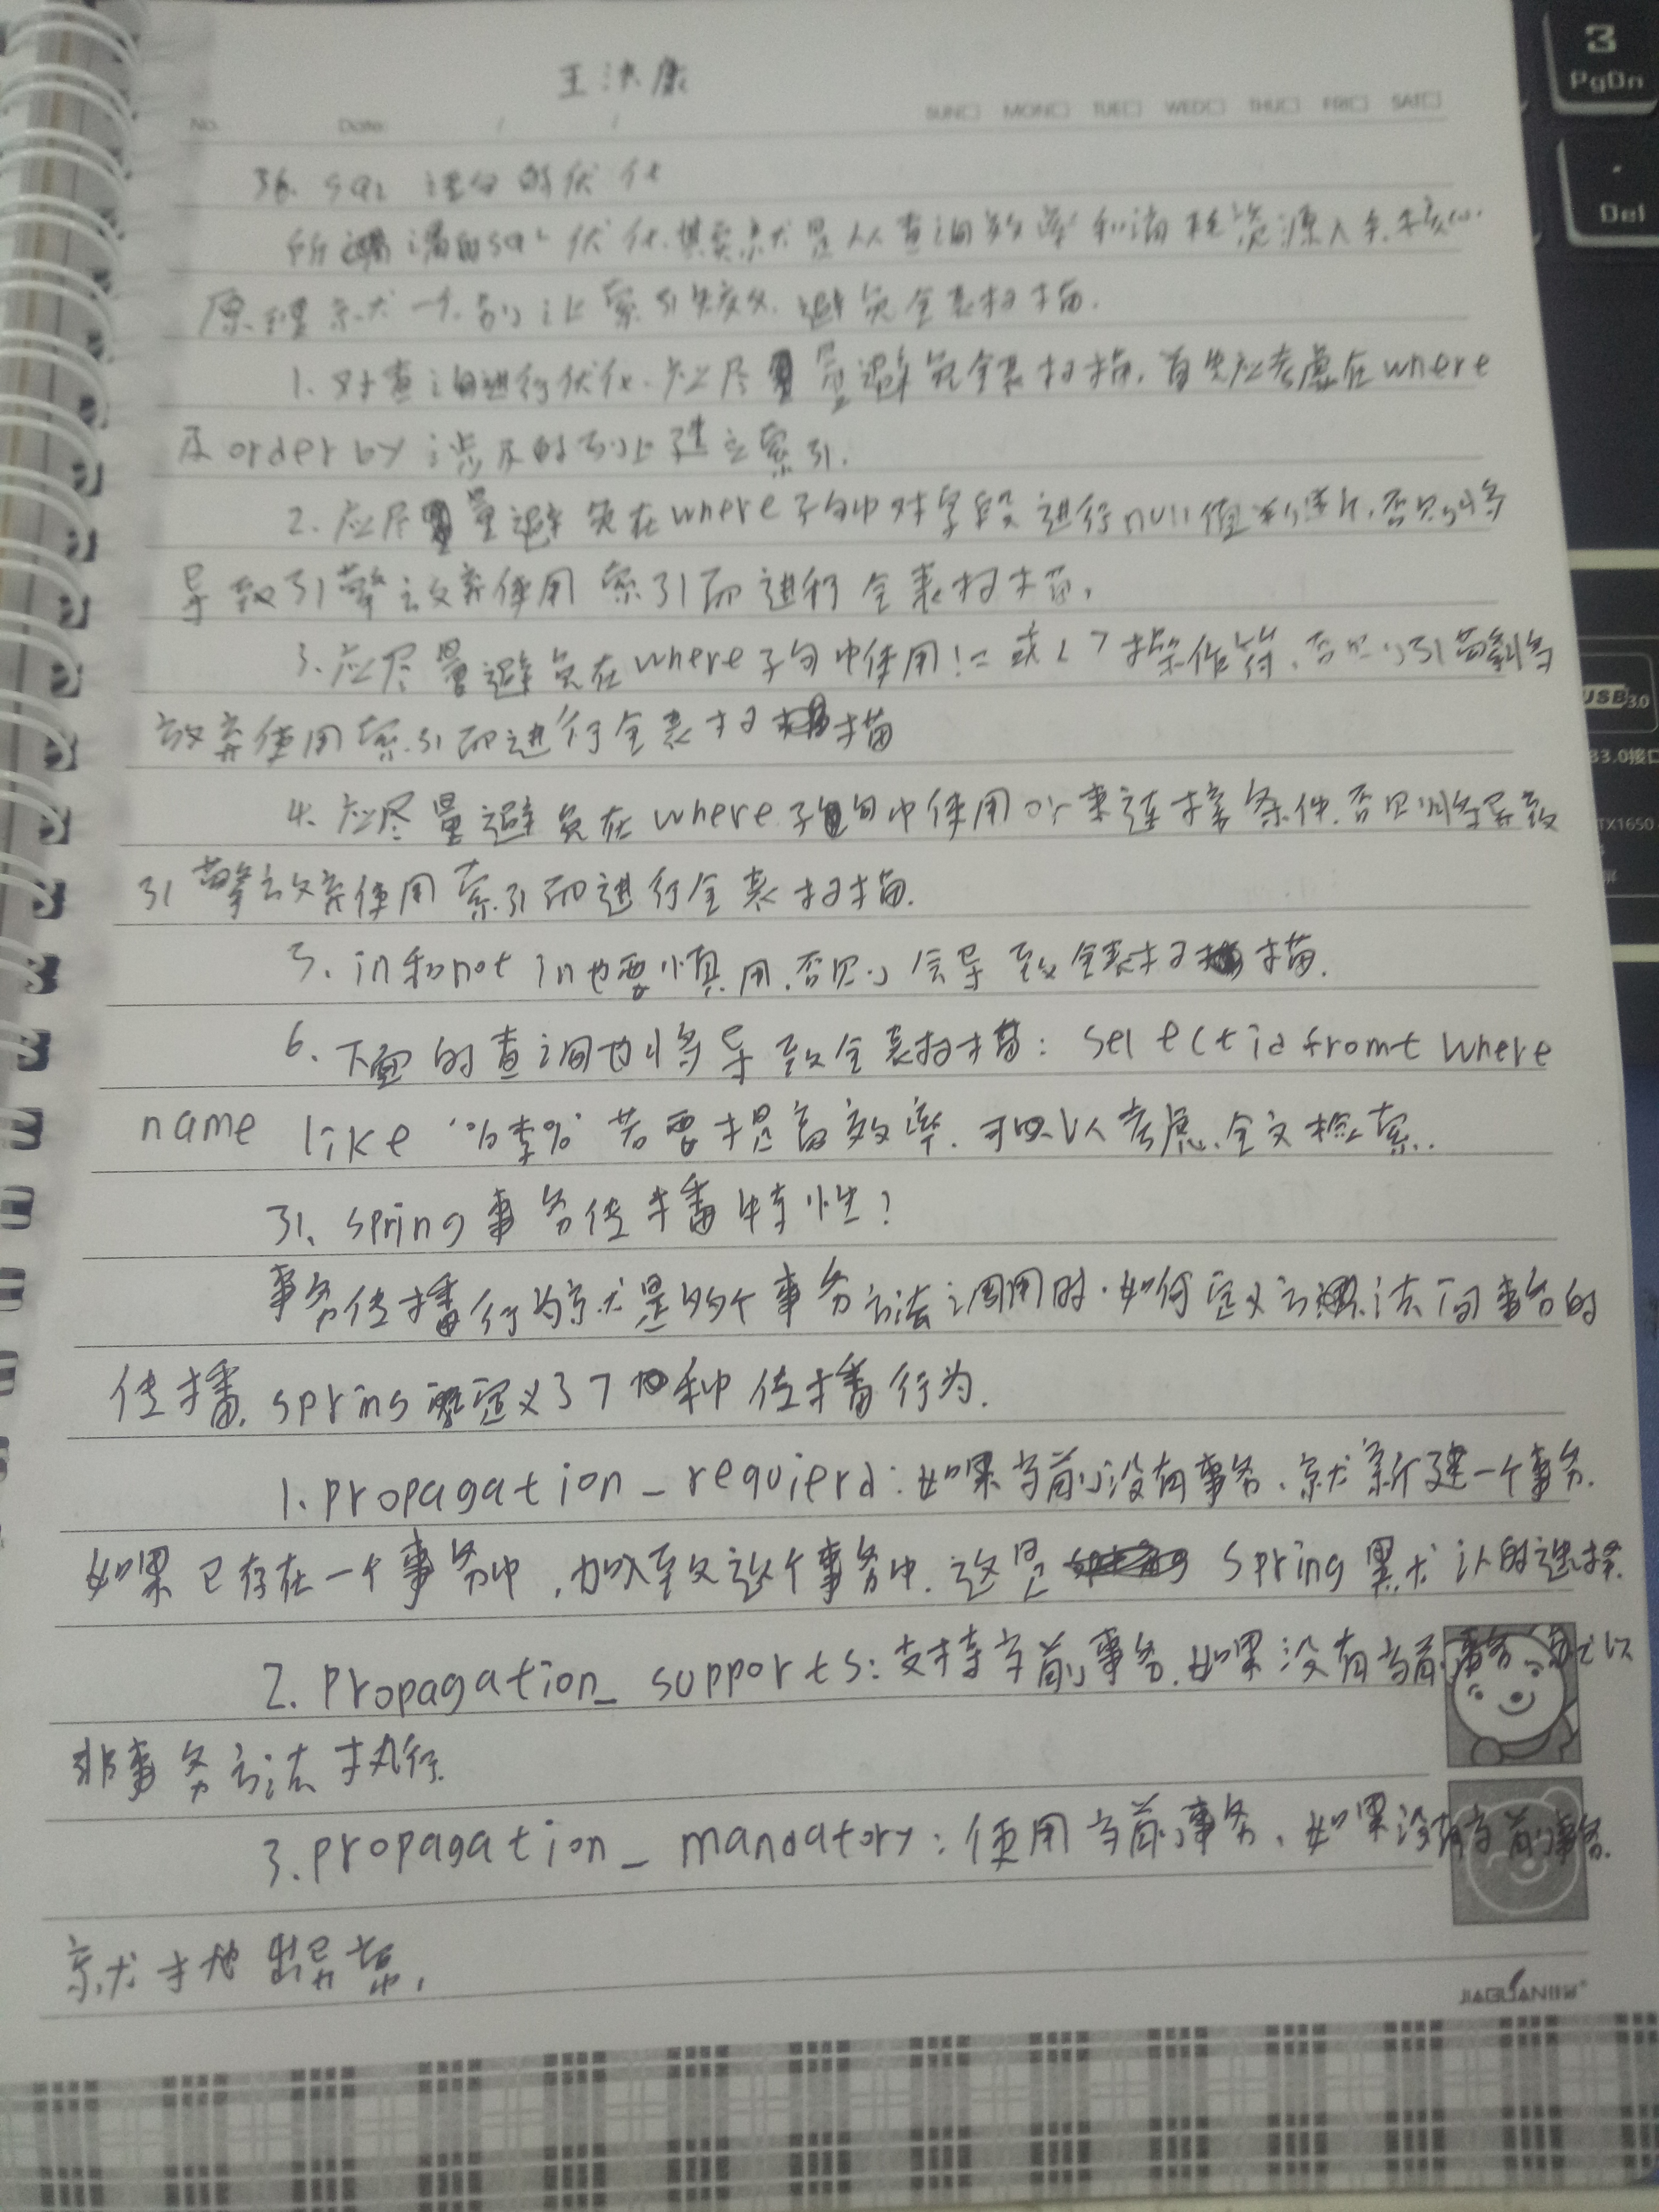 王洪康
No. Date / / SUN□ MON□ TUE□ WED□ THU□ FRI□ SAT□
36. sql 语句的优化
所谓的sql优化,其实就是从查询效率和消耗资源入手,核心
原理就一个,别让索引失效,避免全表扫描.
1. 对查询进行优化,应尽量避免全表扫描,首先应考虑在where
及order by涉及的列上建立索引.
2. 应尽量避免在where子句中对字段进行null值判断,否则将
导致引擎放弃使用索引而进行全表扫描,
3. 应尽量避免在where子句中使用!=或<>操作符,否则引擎将
放弃使用索引而进行全表扫描
4. 应尽量避免在where子句中使用or来连接条件,否则将导致
引擎放弃使用索引而进行全表扫描.
5. in和not in也要慎用,否则会导致全表扫描.
6. 下面的查询也将导致全表扫描: select id from t where
name like '%李%' 若要提高效率,可以考虑全文检索.
31. spring事务传播特性?
事务传播行为就是多个事务方法调用时,如何定义方法间事务的
传播. spring定义了7种传播行为.
1. propagation_requierd: 如果当前没有事务,就新建一个事务.
如果已存在一个事务中,加入到这个事务中.这是 spring默认的选择.
2. propagation_supports: 支持当前事务.如果没有当前事务,就以
非事务方法执行.
3. propagation_mandatory: 使用当前事务,如果没有当前事务.
就抛出异常.
JIAGUAN
3
PgDn
.
Del
USB3.0
B3.0接口
TX1650
屏